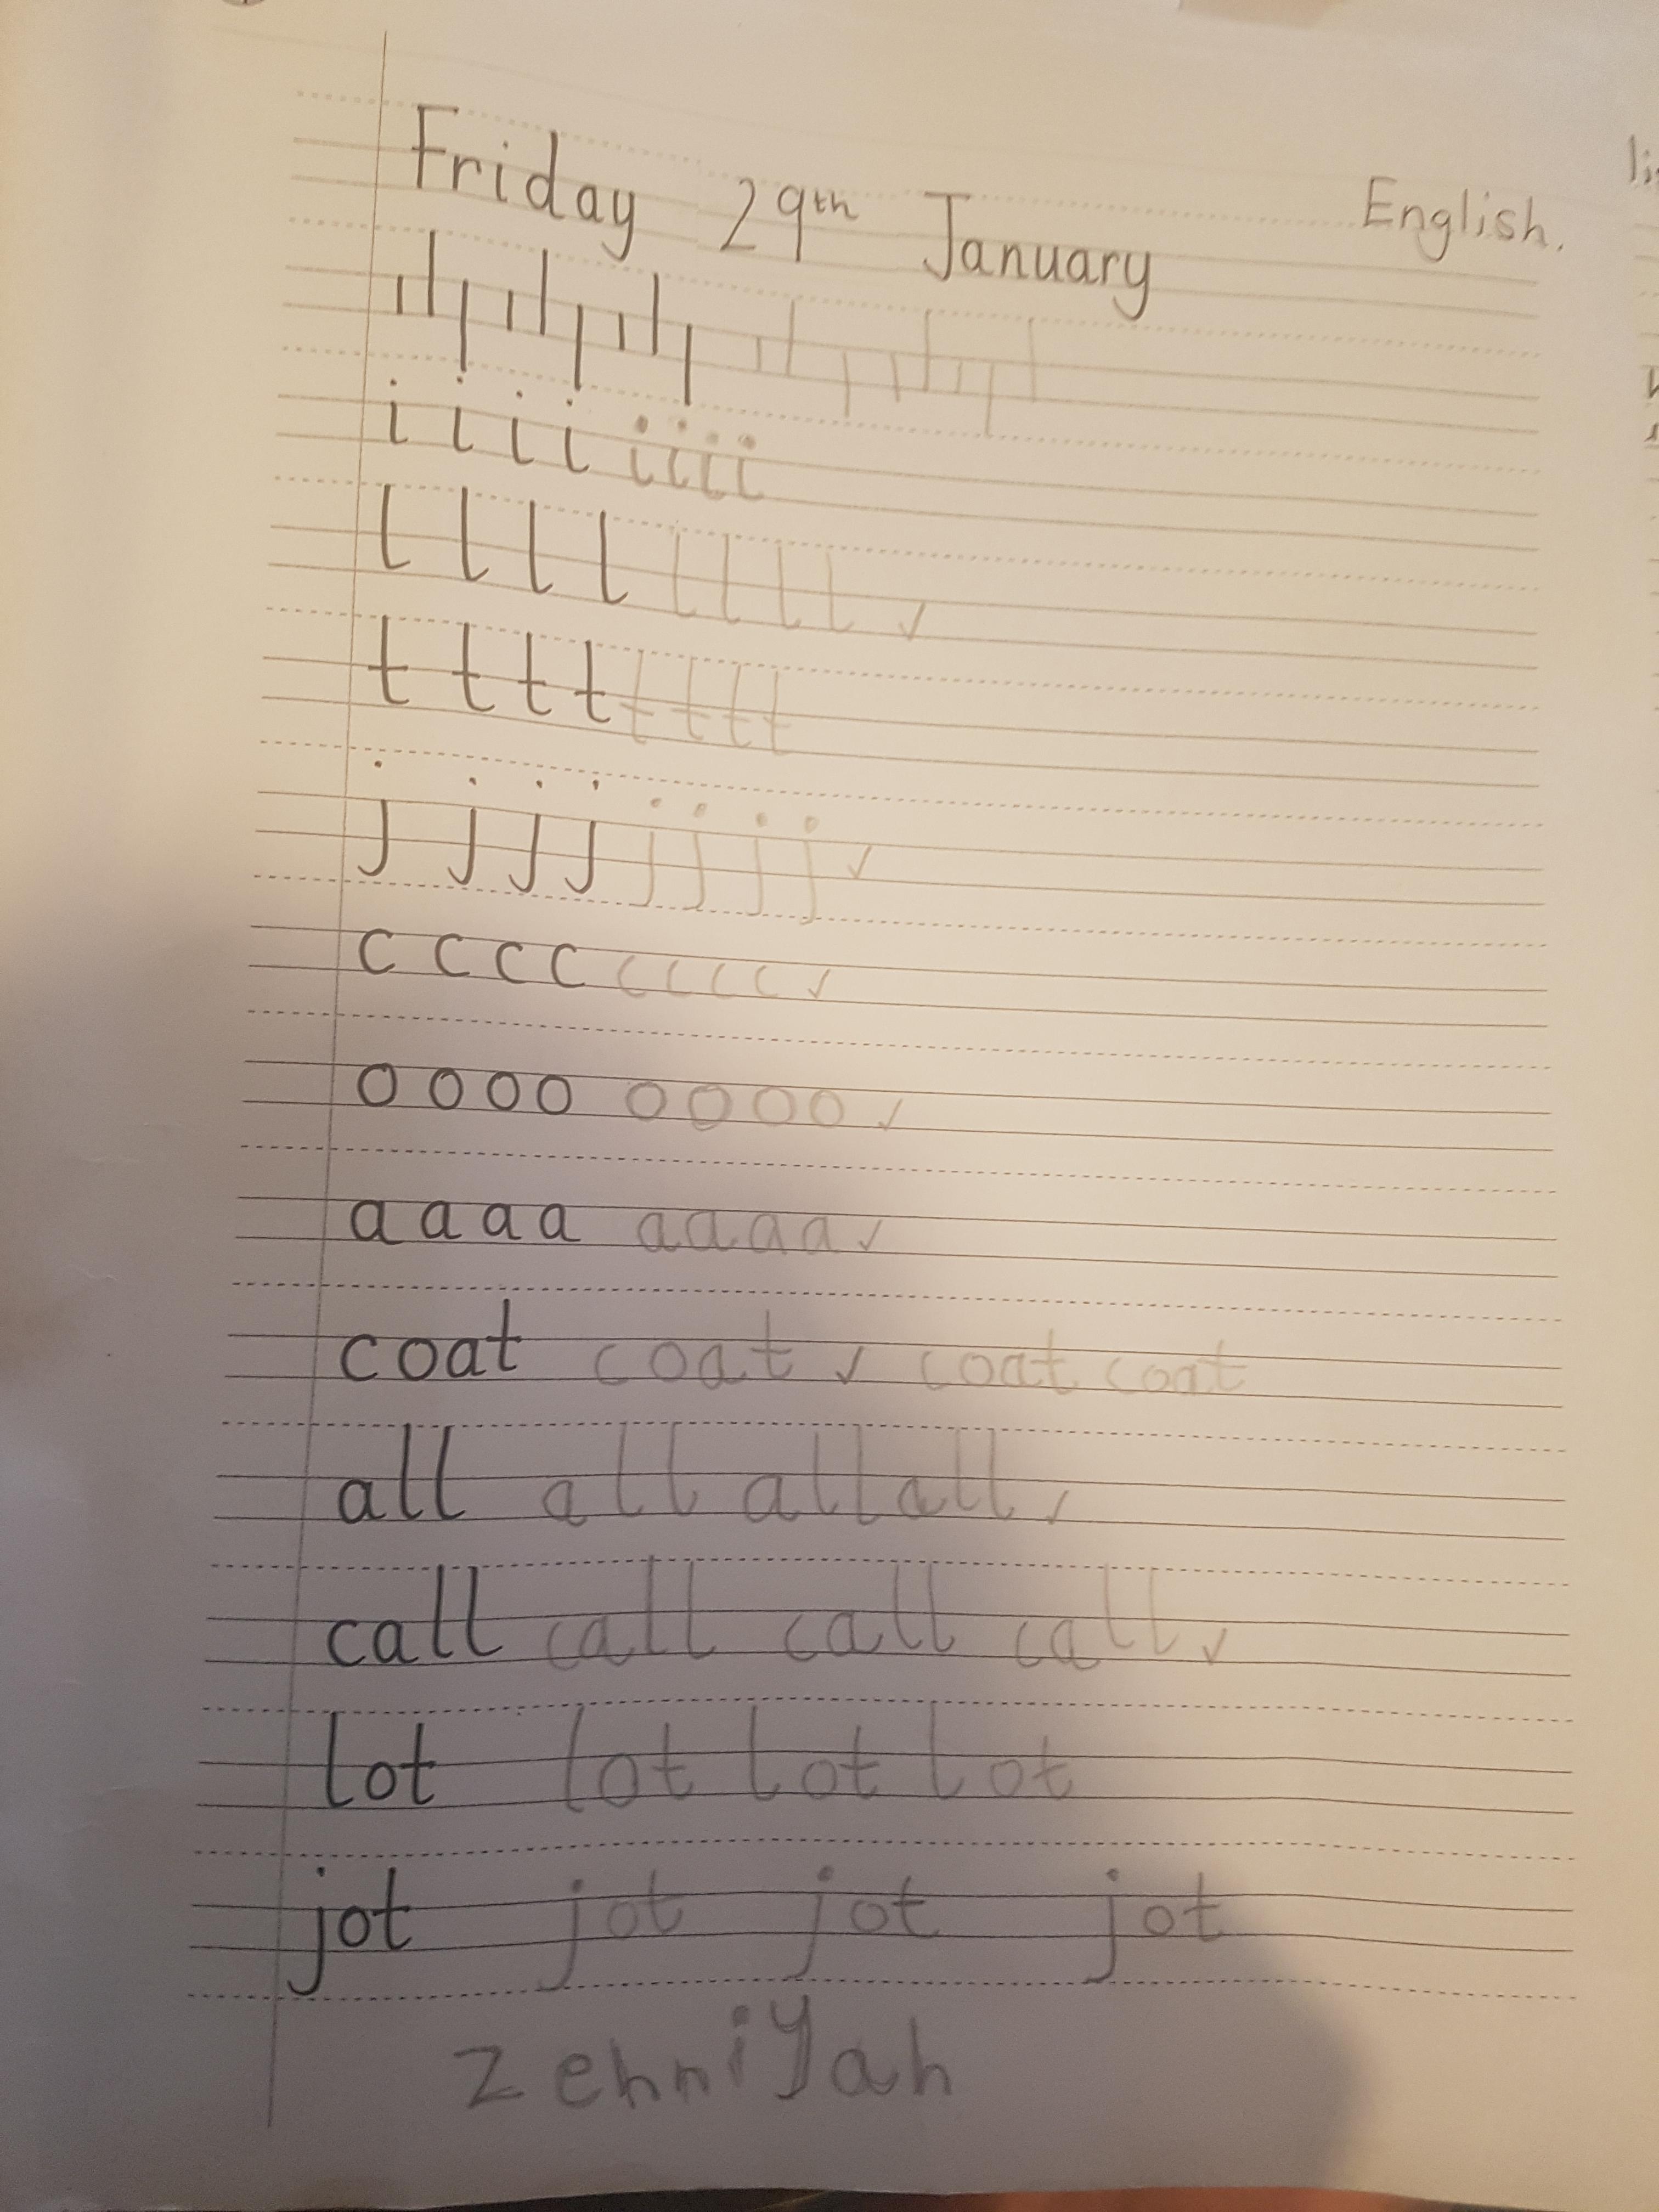 Friday 29th January English.
i i i i i i i i
l l l l l l l l ✓
t t t t t t t t
j j j j j j j j ✓
c c c c c c c c ✓
o o o o o o o o ✓
a a a a a a a a ✓
coat coat ✓ coat coat
all all all all ✓
call call call call ✓
lot lot lot lot
jot jot jot jot
zehniyah